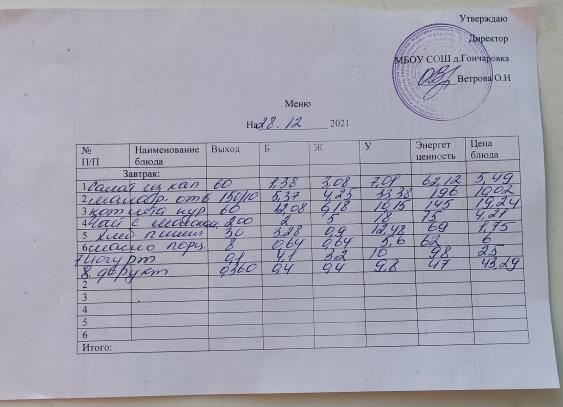 Утверждаю
Директор
МБОУ СОШ д.Гончаровка
Ветрова О.Н
Меню
На 28.12 2021
№ П/П Наименование блюда Выход Б Ж У Энергет ценность Цена блюда
Завтрак:
1 Салат из кап 60 1,38 3,08 7,01 62,12 5,49
2 макар. отв 150/10 5,37 4,25 33,38 196 10,02
3 котлета кур 60 12,08 6,18 10,15 145 19,24
4 Чай с молоком 200 2 5 18 75 4,21
5 Хлеб пшен 30 3,28 0,9 12,48 69 1,75
6 масло порц. 8 0,64 0,64 5,6 62 6
7 Йогурт 0,1 4,1 3,2 10 98 25
8. фрукт 0,360 0,4 0,4 9,8 47 43,29
2
3
4
5
6
Итого: